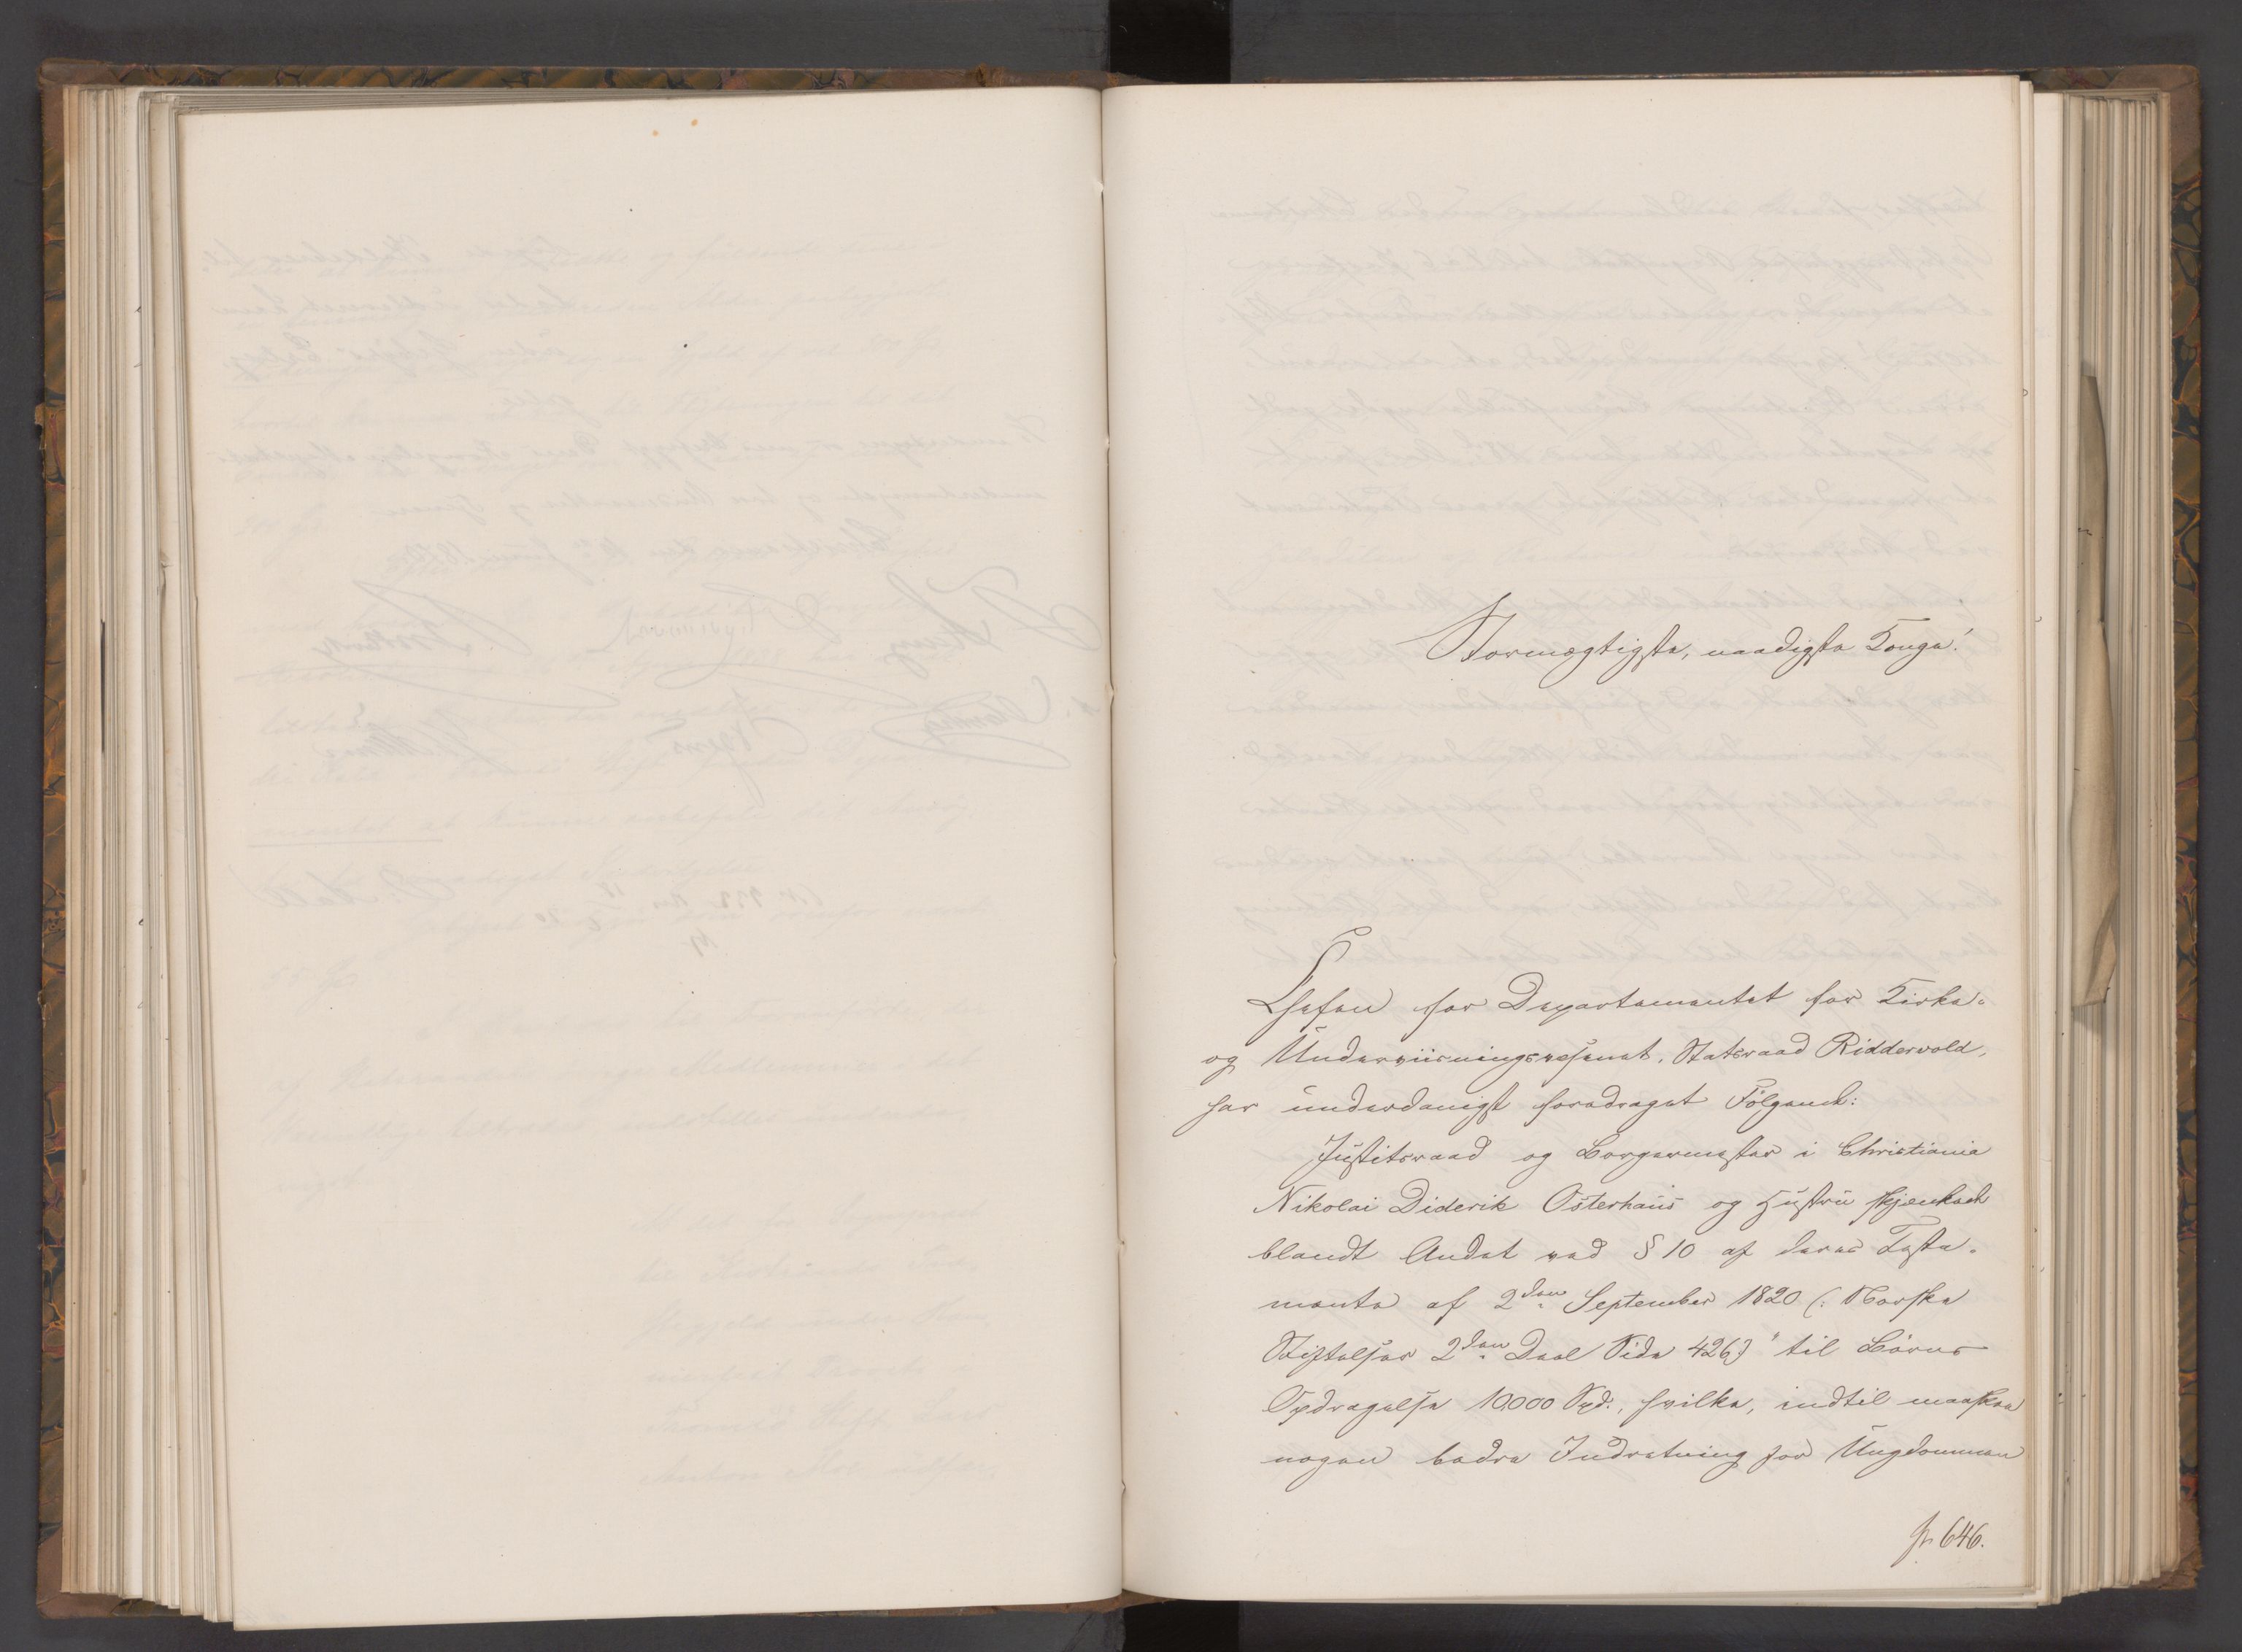 Stormægtigste, naadigste Konge!
Chefen for Departementet for Kirke-
og Underviisningsvæsenet, Statsraad Riddervold,
har underdanigst foredraget Følgende:
Justitsraad og Borgermester i Christiania
Nikolai Diderik Osterhaus og Hustru skjenkede
blandt Andet ved § 10 af deres Testa-
mente af 2den September 1820 (: Norske
Stiftelser 2den Deel Side 426) "til Børns
Opdragelse 10,000 Spd., hvilke, indtil maaskee
nogen bedre Indretning for Ungdommen
fr 646.